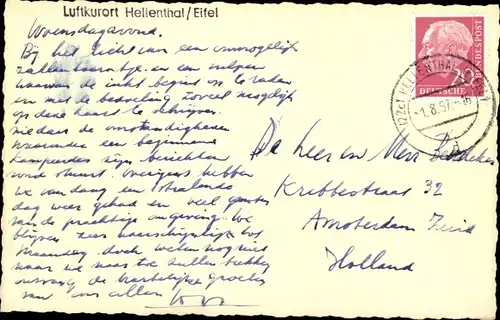 Luftkurort Hellenthal/Eifel
Woensdagavond.
Bij het licht van een onmogelijk
en een vulpen
waarvan de inkt begint op te raken
en met de bedoeling zoveel mogelijk
op deze kaart te schrijven
de omstandigheden
waaronder een beginnend
kampeerder zijn berichten
rond stuurt. Overigens hebben
we vandaag een stralende
dag weer gehad en veel
van de prachtige omgeving. We
blijven zeer waarschijnlijk tot
Maandag, doch weten nog niet
waar we naar toe zullen trekken
ontvang de hartelijke groeten
van ons allen
DEUTSCHE BUNDESPOST
20
HELLENTHAL
1.8.57
De Heer en Mevr
Kribbestraat 32
Amsterdam Zuid
Holland